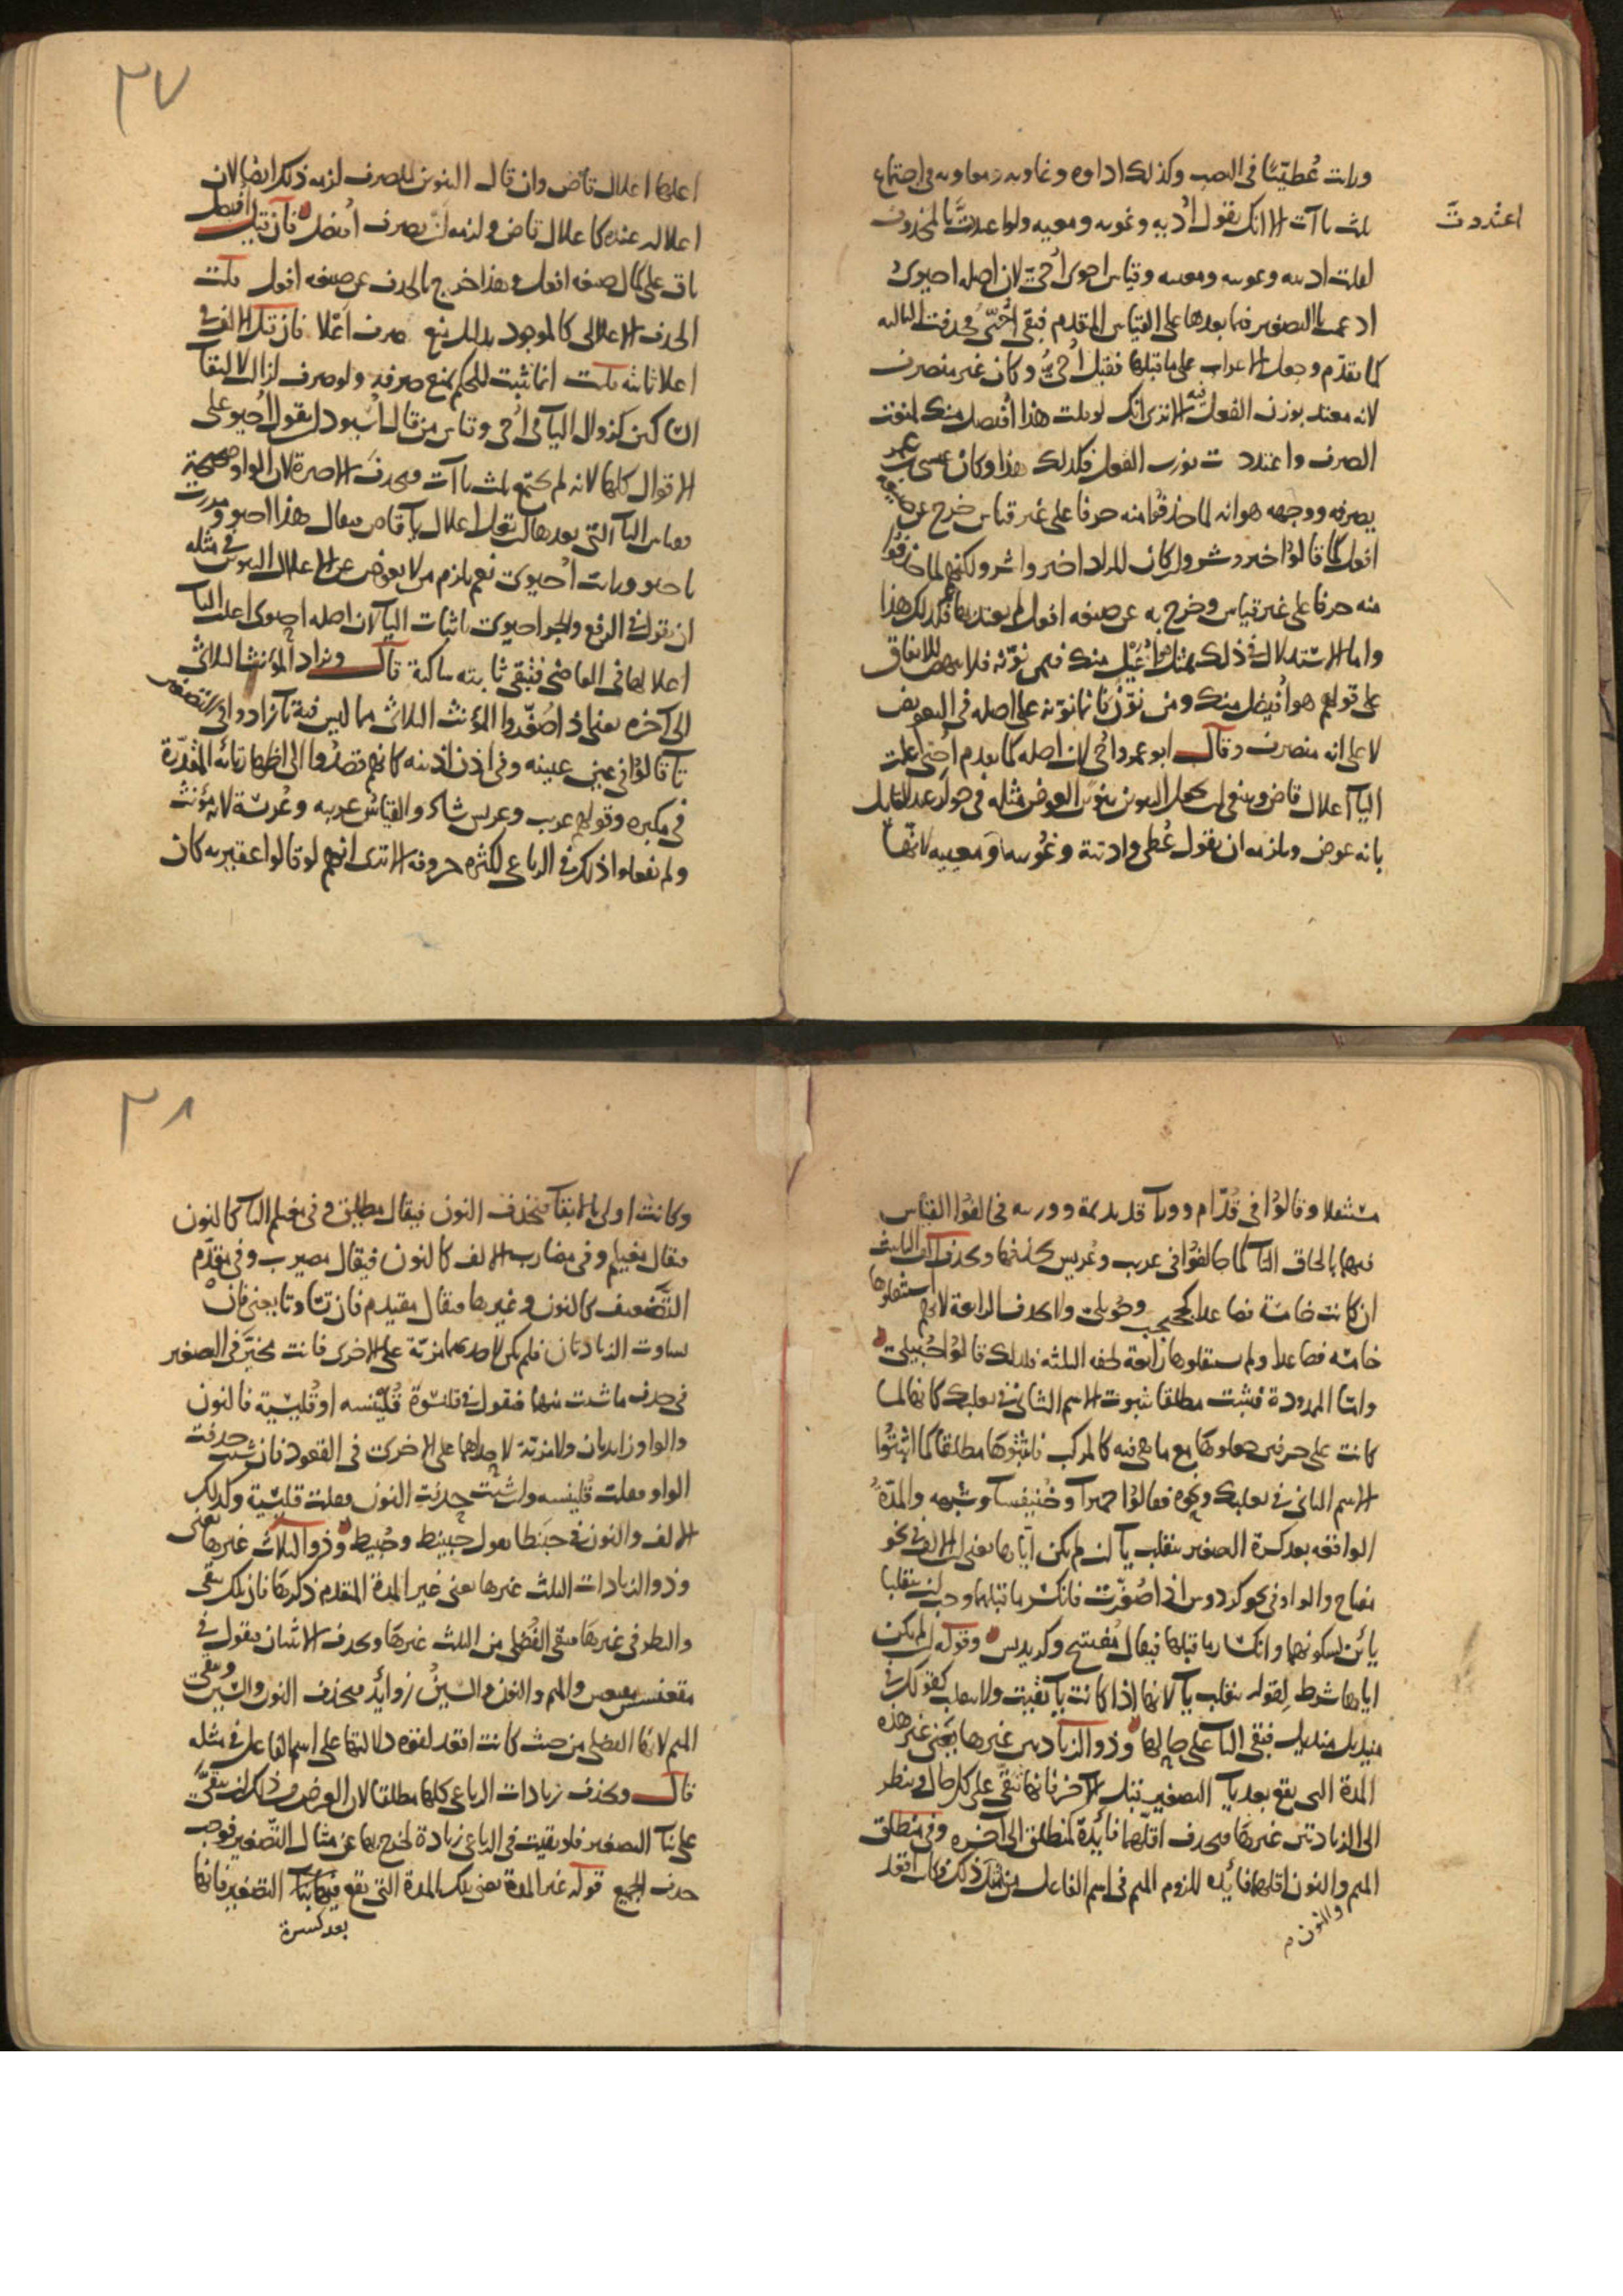 ورات عُطيّيًا في النصب وكذلك اداوه وغاويه ومعاويه في اجتماع
اعتددت
ثلث ياآت الا انك تقول اُديه وغويه ومعيه ولو اعتددت بالمحذوف
لقلت ادييه وغوييه ومعييه وقياس احوى اُحيّ لان اصله احيوى
ادغمت يا التصغير فيما بعدها على القياس المتقدم فبقي اُحيّي فحذفت الثالثه
كما تقدّم وجعل الاعراب على ما قبلها فقيل اُحيُّ وكان غير منصرف
لانه معتد بوزن الفعل فيه الا ترى انك لو قلت هذا اُفيضل منك لمنعت
الصرف واعتددت بوزن الفعل فكذلك هذا وكان عيسى بن عمر
يصرفه ووجهه هو انه لما حذفوا منه حرفا على غير قياس خرج عن صيغه
افعل كما قالوا خير وشر وان كان المراد اخير واشر ولكنهم لما حذفوا
منه حرفا على غير قياس وخرج به عن صيغه افعل لم يعتد بها فكذلك هذا
واما الاستدلال في ذلك بمثل هو اُغَيْل منك فيمن نوّنه فلا ينهض للاتفاق
على قولهم هو اُفيضل منك ومن نوّن فانما نوّنه على اصله في التعويض
لا على انه منصرف وقال ابو عمرو اُحيٍ لان اصله كما تقدم اُحيي اعلت
الياء اعلال قاض وينبغي ان يجعل التنوين تنوين العوض مثله في جوار عند القايل
بانه عوض ويلزمه ان يقول عُطي واديّة وغويه ومعييه لانّها
٣٧
اعلها اعلال قاض وان قال التنوين للصرف لزمه ذلك ايضا لان
اعلاله عنده كاعلال قاض ولزمه ان يصرف افضل فان قيل افضل
باق على كمال صيغه افعل وهذا خرج بالحذف عن صيغه افعل قلت
الحذف الاعلالي كالموجود بدليل منع صرف اعلا فان قيل الالف في
اعلا ثابته قلت انما تثبت للحكم بمنع صرفه ولو صرف لزال لالتقا
الساكنين كزوال اليا في اُحي وقياس من قال اُسيود ان يقول اُحيو على
الاقوال كلها لانه لم يجتمع ثلث ياآت فيحذف الاخيرة لان الواو صحيحة
وقياس اليا التي بعدها ان تعل اعلال يا قاض فيقال هذا احيو ومررت
باحيو ورايت اُحيوي نعم يلزم من لا يعوض عن الاعلال التنوين في مثله
ان يقول في الرفع والجر احيوي باثبات اليا لان اصله احيوى اعلت اليا
اعلالها في القاضي فتبقى ثابته ساكنة قال ويزاد للمؤنث الثلاثي
الى آخره يعني اذا صُغّروا المؤنث الثلاثي مما ليس فيه تا زادوا في التصغير
تا قالوا في عين عيينه وفي اذن اذينه كانهم قصدوا الى اظهار تائه المقدّرة
في مكبره وقولهم عريب وعريس شاذ والقياس عريبه وعُريسة لانه مؤنث
ولم يفعلوا ذلك في الرباعي لكثره حروفه الا ترى انهم لو قالوا عقيربه كان
مستثقلا وقالوا في قُدّام وورا قديديمة ووريه فخالفوا القياس
فيها بالحاق التا كما خالفوا في عريب وعُريس بحذفها وتحذف الف التانيث
ان كانت خامسة فصاعدا كجحيجب وحويلي ولا تحذف الرابعة لانهم استثقلوها
خامسه فصاعدا ولم يستثقلوها رابعة لخفه الثلثه فلذلك قالوا حُبيلى
وامّا الممدودة فتثبت مطلقا ثبوت الاسم الثاني في بعلبك كانها لما
كانت على حرفين جعلوها مع ما هي فيه كالمركب فاثبتوها مطلقا كما اثبتوا
الاسم الثاني في بعلبك ونحوه فقالوا حميرا وخُنيفسا وشبهه والمدّة
الواقعه بعد كسرة التصغير تنقلب يا ان لم تكن اياها يعني ان الالف في نحو
مفتاح والواو في نحو كردوس اذا صُغّرت فانكسر ما قبلها وجب ان تنقلبا
يائين لسكونهما وانكسار ما قبلها فيقال مُفيتيح وكريديس وقوله ان لم تكن
اياها شرط لقوله تنقلب يا لانها اذا كانت يا بقيت ولا تنقلب كقولك في
منديل منيديل فتبقى اليا على حالها وذو الزيادتين غيرها يعني غير هذه
المدة التي تقع بعد يا التصغير قبل الآخر فانها تبقى على كل حال وينظر
الى الزيادتين غيرها فيحذف اقلهما فائدة كمنطلق الى آخره وفي منطلق
الميم والنون اقلهما فائده للزوم الميم في اسم الفاعل من ذلك فكانت اقعد
والنون م
٣٨
وكانت اولى بالابقا فتحذف النون فيقال مطيلق وفي مغيلم اليا كالنون
فيقال مغيلم وفي مضارب الالف كالنون فيقال مضيرب وفي مقدّم
التضعيف كالنون وغيرها فيقال مقيدم فان تساوتا يعني فان
تساوت الزيادتان فلم يكن لاحديهما مزيّة على الاخرى فانت مخيّر في التصغير
في حذف ما شئت منها فتقول في قلنسوة قُلَيْنسه او قُليسيه فالنون
والواو زايدتان ولا مزيّة لاحداهما على الاخرى في القعود فان شئت حذفت
الواو فقلت قُلينسه وان شئت حذفت النون فقلت قليسيّة وكذلك
الالف والنون في حبنطا تقول حبينط وحُبيط وذو الثلاث غيرها يعني
وذو الزيادات الثلث غيرها يعني غير المدة المتقدم ذكرها فان تلك تبقى
والنظر في غيرها فتبقى الفُضلى من الثلث غيرها وتحذف الاثنتان فتقول في
مقعنسس مقيعس والميم والنون والسين زوائد فتحذف النون والسين وتبقى
الميم لانها الفضلى من حيث كانت اقعد لقوه دلالتها على اسم الفاعل في مثله
قال وتحذف زيادات الرباعي كلها مطلقا لان الغرض في ذلك ان تبقى
على بنا التصغير فلو بقيت في الرباعي زيادة لخرج بها عن مثال التصغير فوجب
حذف الجميع قوله غير المدة يعني تلك المدة التي تقع فيها بنا التصغير فانها
بعد كسرة